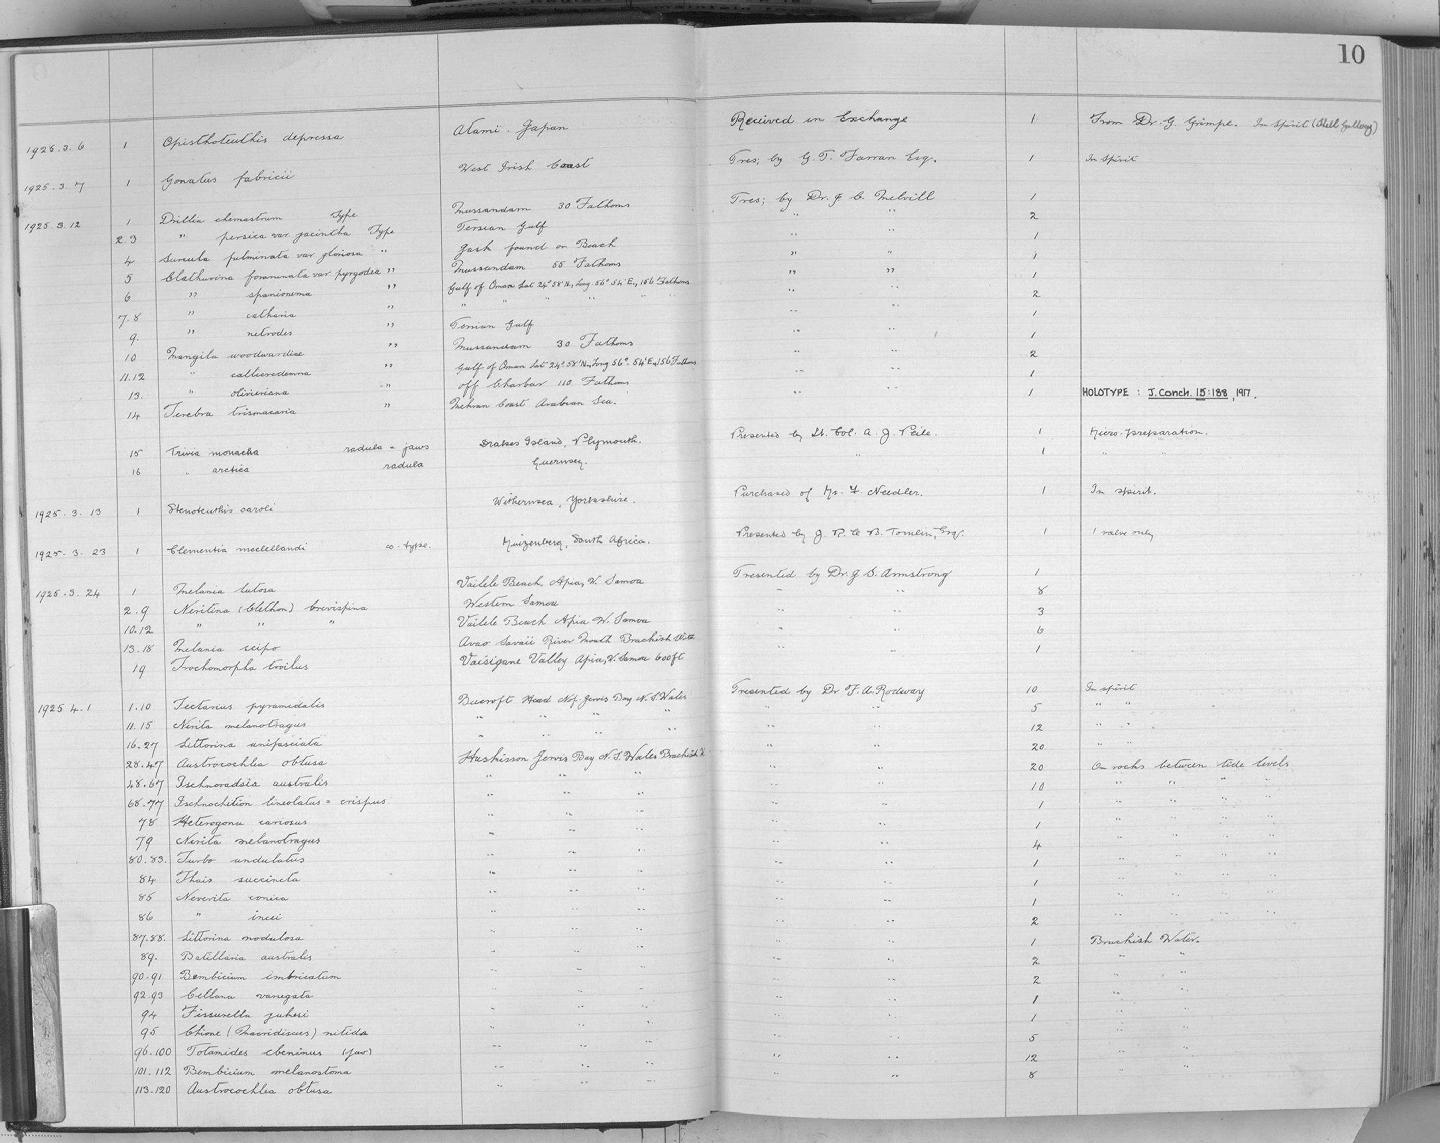 10
1925.3.6 1 Opisthoteuthis depressa Atami. Japan Received in Exchange 1 From Dr. G. Grimpe. In Spirit (Shell Gallery)
1925.3.7 1 Gonatus fabricii West Irish Coast Pres; by G. P. Farran Esq. 1 In Spirit
1925.3.12 1 Drillia clemastrum Type Mussandam 30 Fathoms Pres; by Dr. J C Melvill 1
2.3 " persica var jacintha Type Persian Gulf " " 2
4 Surcula fulminata var gloriosa " Gash found on Beach " " 1
5 Clathurina foraminata var pyrgodea " Mussandam 55 Fathoms " " 1
6 " spanionema " Gulf of Oman Lat 24° 58' N, Long. 56° 54' E, 156 Fathoms " " 1
7.8 " catharia " " " " " " " " " 2
9. " netrodes " Persian Gulf " " 1
10 Mangilia woodwardiae " Mussandam 30 Fathoms " " 1
11.12 " calliaedemna " Gulf of Oman Lat 24° 58' N, Long 56° 54' E, 156 Fathoms " " 2
13. " olivieriana " off Charbar 110 Fathoms " " 1
14 Terebra trismacaria " Mekran Coast Arabian Sea. " " 1 HOLOTYPE : J. Conch. 15:188, 1917.
15 Trivia monacha radula + jaws Drakes Island, Plymouth. Presented by Lt. Col. A. J. Peile. 1 Micro-preparation.
16 " arctica radula Guernsey. " 1 " "
1925.3.13 1 Stenoteuthis caroli Withernsea, Yorkshire. Purchased of Mr. F. Needler. 1 In spirit.
1925.3.23 1 Clementia mcclellandi co-type. Muizenberg, South Africa. Presented by J. R. le B. Tomlin, Esq. 1 1 valve only
1925.3.24 1 Melania lutosa Vailele Beach, Apia, W. Samoa Presented by Dr. J S. Armstrong 1
2.9 Neritina (Clethon) brevispina Western Samoa " " 8
10.12 " " " Vailele Beach Apia W. Samoa " " 3
13.18 Melania scipo Avao Savaii River Mouth Brackish Water " " 6
19 Trochomorpha troilus Vaisigane Valley Apia, W. Samoa 600ft " 1
1925 4.1 1.10 Tectarius pyramidalis Beecroft Head Nof Jervis Bay N. S. Wales Presented by Dr F. A. Rodway 10 In spirit
11.15 Nerita melanotragus " " " " " " 5 " "
16.27 Littorina unifasciata " " " " " " 12 " "
28.47 Austrocochlea obtusa Huskisson Jervis Bay N. S. Wales Brackish W " " 20 " "
48.67 Ischnoradsia australis " " " " " 20 On rocks between tide levels
68.77 Ischnochiton lineolatus = crispus " " " " " 10 " " " "
78 Heterogona cariosus " " " " " 1 " " " "
79 Nerita melanotragus " " " " " 1 " " " "
80.83. Turbo undulatus " " " " " 4 " " " "
84 Thais succincta " " " " " 1 " " " "
85 Neverita conica " " " " " 1 " " " "
86 " incei " " " " " 1 " " " "
87.88. Littorina nodulosa " " " " " 2 " " " "
89. Batillaria australis " " " " " 1 Brackish Water.
90.91 Bembicium imbricatum " " " " " 2 " "
92.93 Cellana variegata " " " " " 2 " "
94 Fissurella jukesi " " " " " 1 " "
95 Chione (Macridiscus) nitida " " " " " 1 " "
96.100 Potamides ebeninus (juv) " " " " " 5 " "
101.112 Bembicium melanostoma " " " " " 12 " "
113.120 Austrocochlea obtusa " " " " " 8 " "